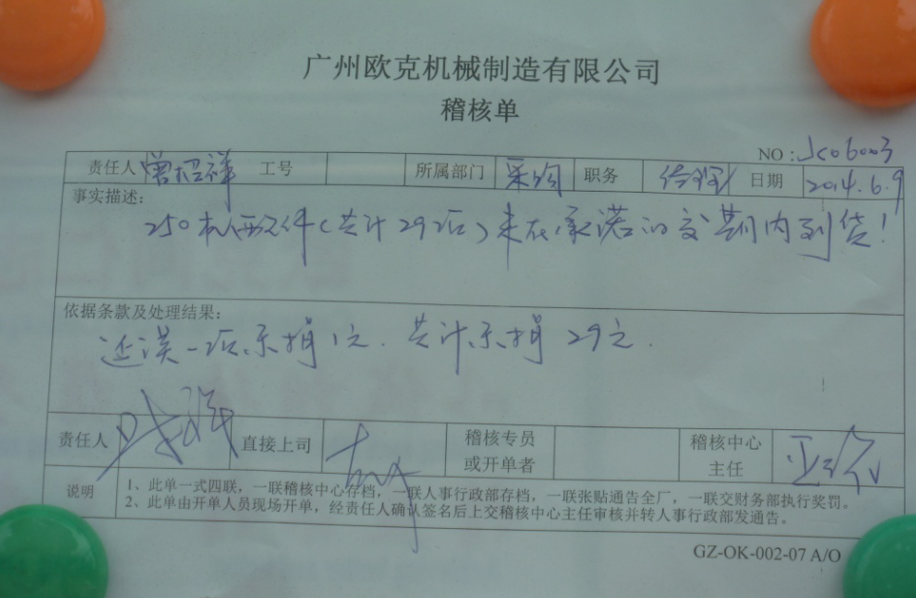 广州欧克机械制造有限公司
稽核单
NO:JC06003
责任人 曾招祥 工号 所属部门 采购 职务 经理 日期 2014.6.9
事实描述:
250 配件(共计29项)未在承诺的交期内到货!
依据条款及处理结果:
延误一项乐捐1元.共计乐捐29元.
责任人 直接上司 稽核专员或开单者 稽核中心主任
说明 1、此单一式四联，一联稽核中心存档，一联人事行政部存档，一联张贴通告全厂，一联交财务部执行奖罚。
2、此单由开单人员现场开单，经责任人确认签名后上交稽核中心主任审核并转人事行政部发通告。
GZ-OK-002-07 A/O